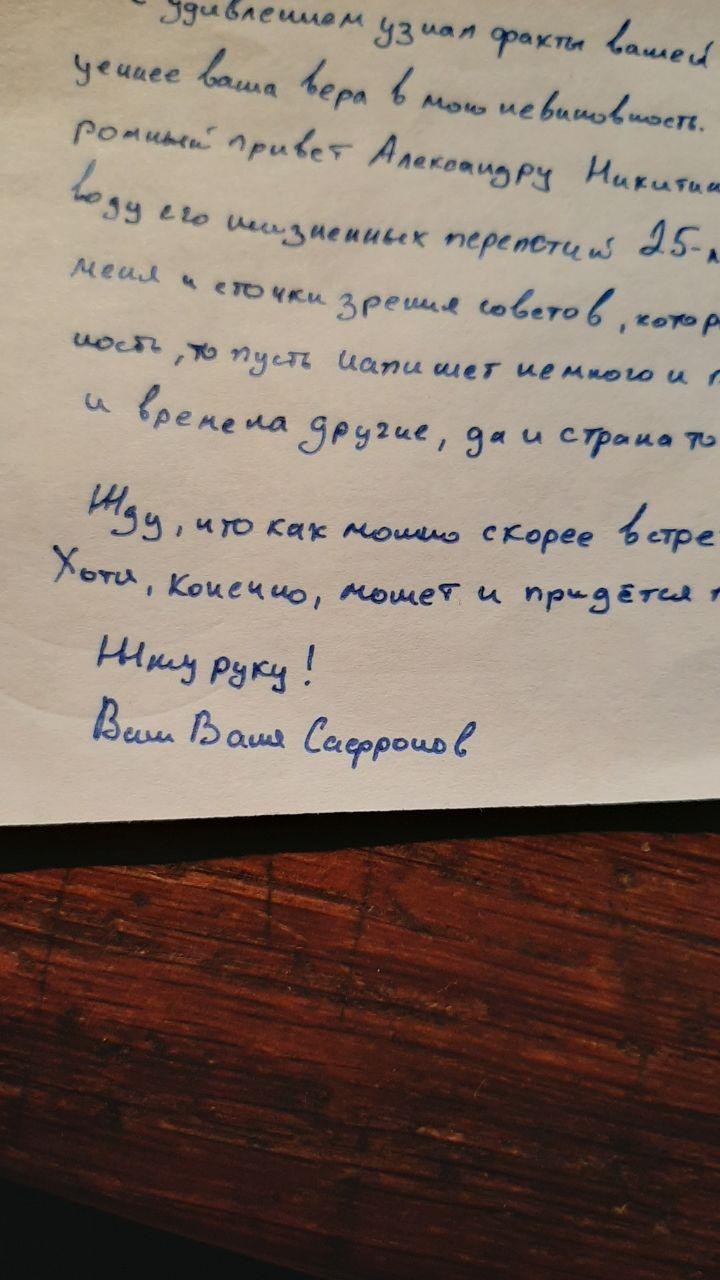 с удивлением узнал факты вашей
ценнее ваша вера в мою невиновность.
ромный привет Александру Никитин
воду его жизненных перепетий 25-л
меня и сточки зрения советов, котор
ность, то пусть напишет немного и п
и времена другие, да и страна то
Жду, что как можно скорее встре
Хотя, конечно, может и придётся п
Жму руку!
Ваш Ваня Сафронов